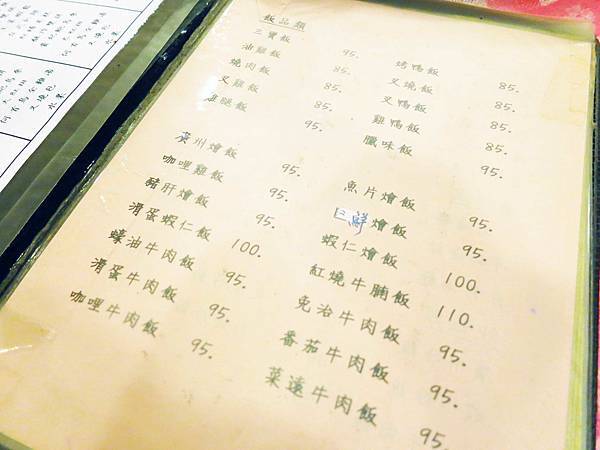 飯品類
三寶飯 95.
油雞飯 85.
燒肉飯 85.
叉雞飯 85.
雞腿飯 95.
烤鴨飯 85.
叉燒飯 85.
叉鴨飯 85.
雞鴨飯 85.
臘味飯 95.
廣州燴飯 95.
咖哩雞飯 95.
豬肝燴飯 95.
滑蛋蝦仁飯 100.
蠔油牛肉飯 95.
滑蛋牛肉飯 95.
咖哩牛肉飯 95.
魚片燴飯 95.
三鮮燴飯 95.
蝦仁燴飯 100.
紅燒牛腩飯 110.
免治牛肉飯 95.
番茄牛肉飯 95.
菜遠牛肉飯 95.